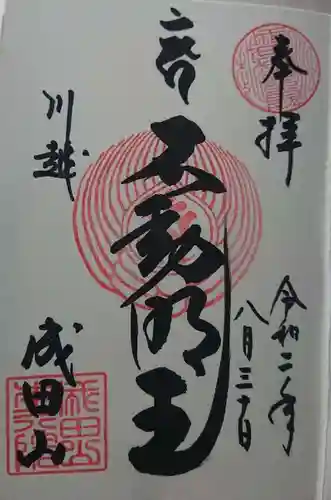 奉拝
令和二年
八月三十日
不動明王
川越
成田山